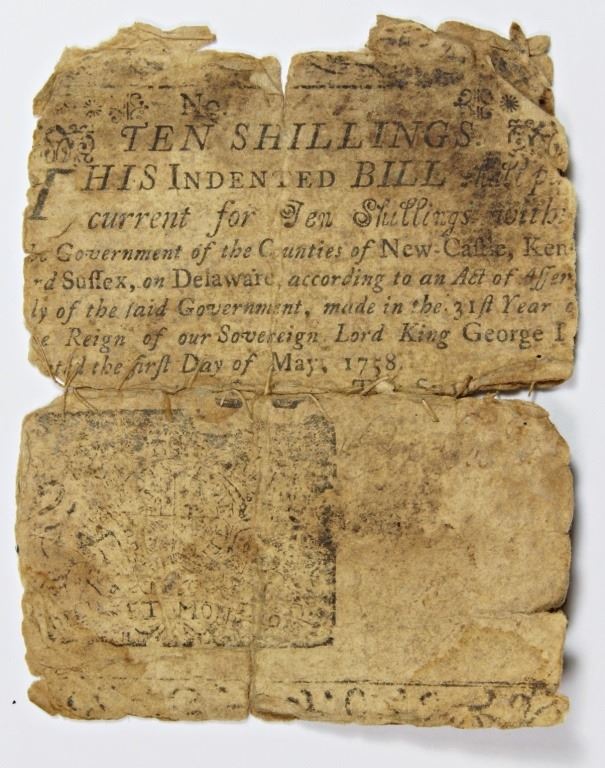 No.
TEN SHILLINGS.
THIS INDENTED BILL shall pa
current for Ten Shillings with
he Government of the Counties of New-Castle, Ken
rd Suſſex, on Delaware, according to an Act of Aſſem
ly of the ſaid Government, made in the 31ſt Year o
e Reign of our Sovereign Lord King George I
ated the firſt Day of May, 1758.
ET MON